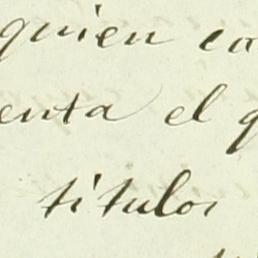 quien co
enta el q
titulos